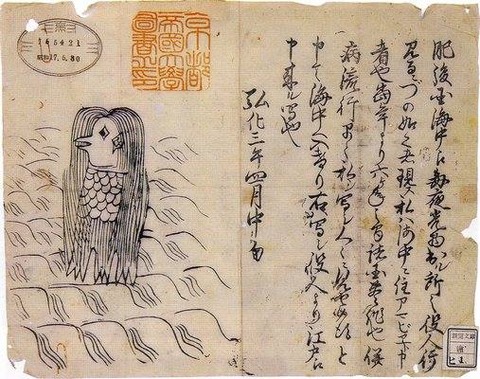 肥後国海中え毎夜光物出ル所之役人行
見るニづの如く者現ス私ハ海中ニ住アマビヱト申
者也当年より六ヶ年之間諸国豊作也併
病流行早々私ヲ写シ人々ニ見セ候得と
申て海中へ入けり右写シ役人より江戸え
申来ル写也
弘化三年四月中旬
京都
帝國大學
圖書之印
昭和17.5.30